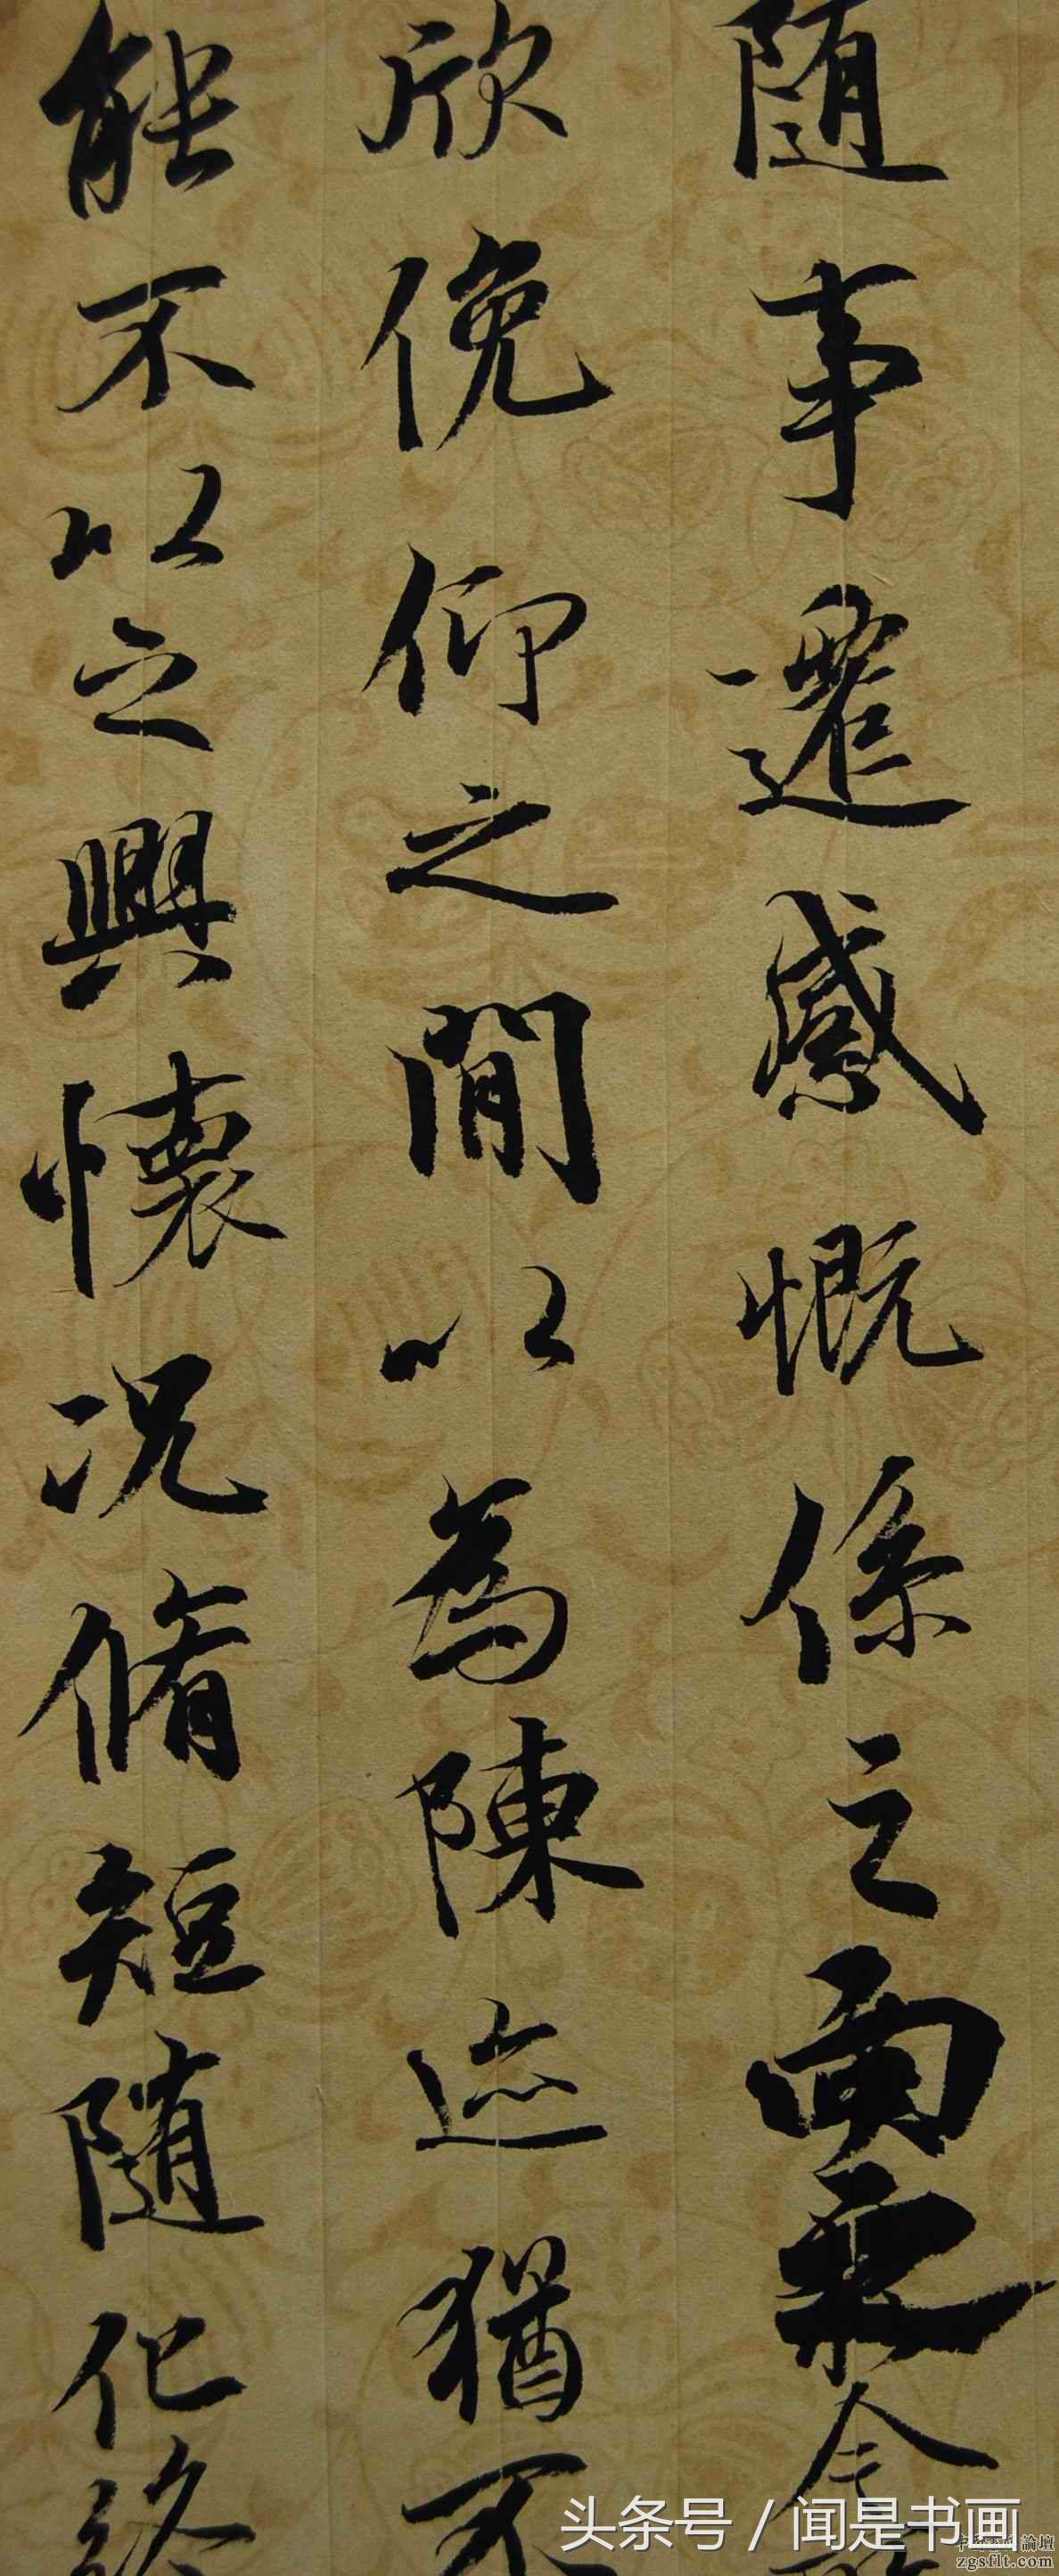 随事遷感慨係之向之
欣俛仰之閒以為陳迹猶不
能不以之興懷况脩短随化終
头条号 / 闻是书画
論壇
zgsflt.com